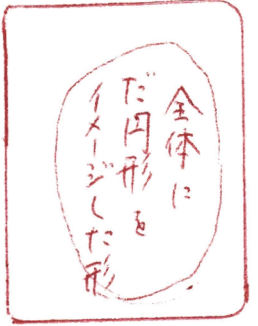 全体に
だ円形を
イメージした形